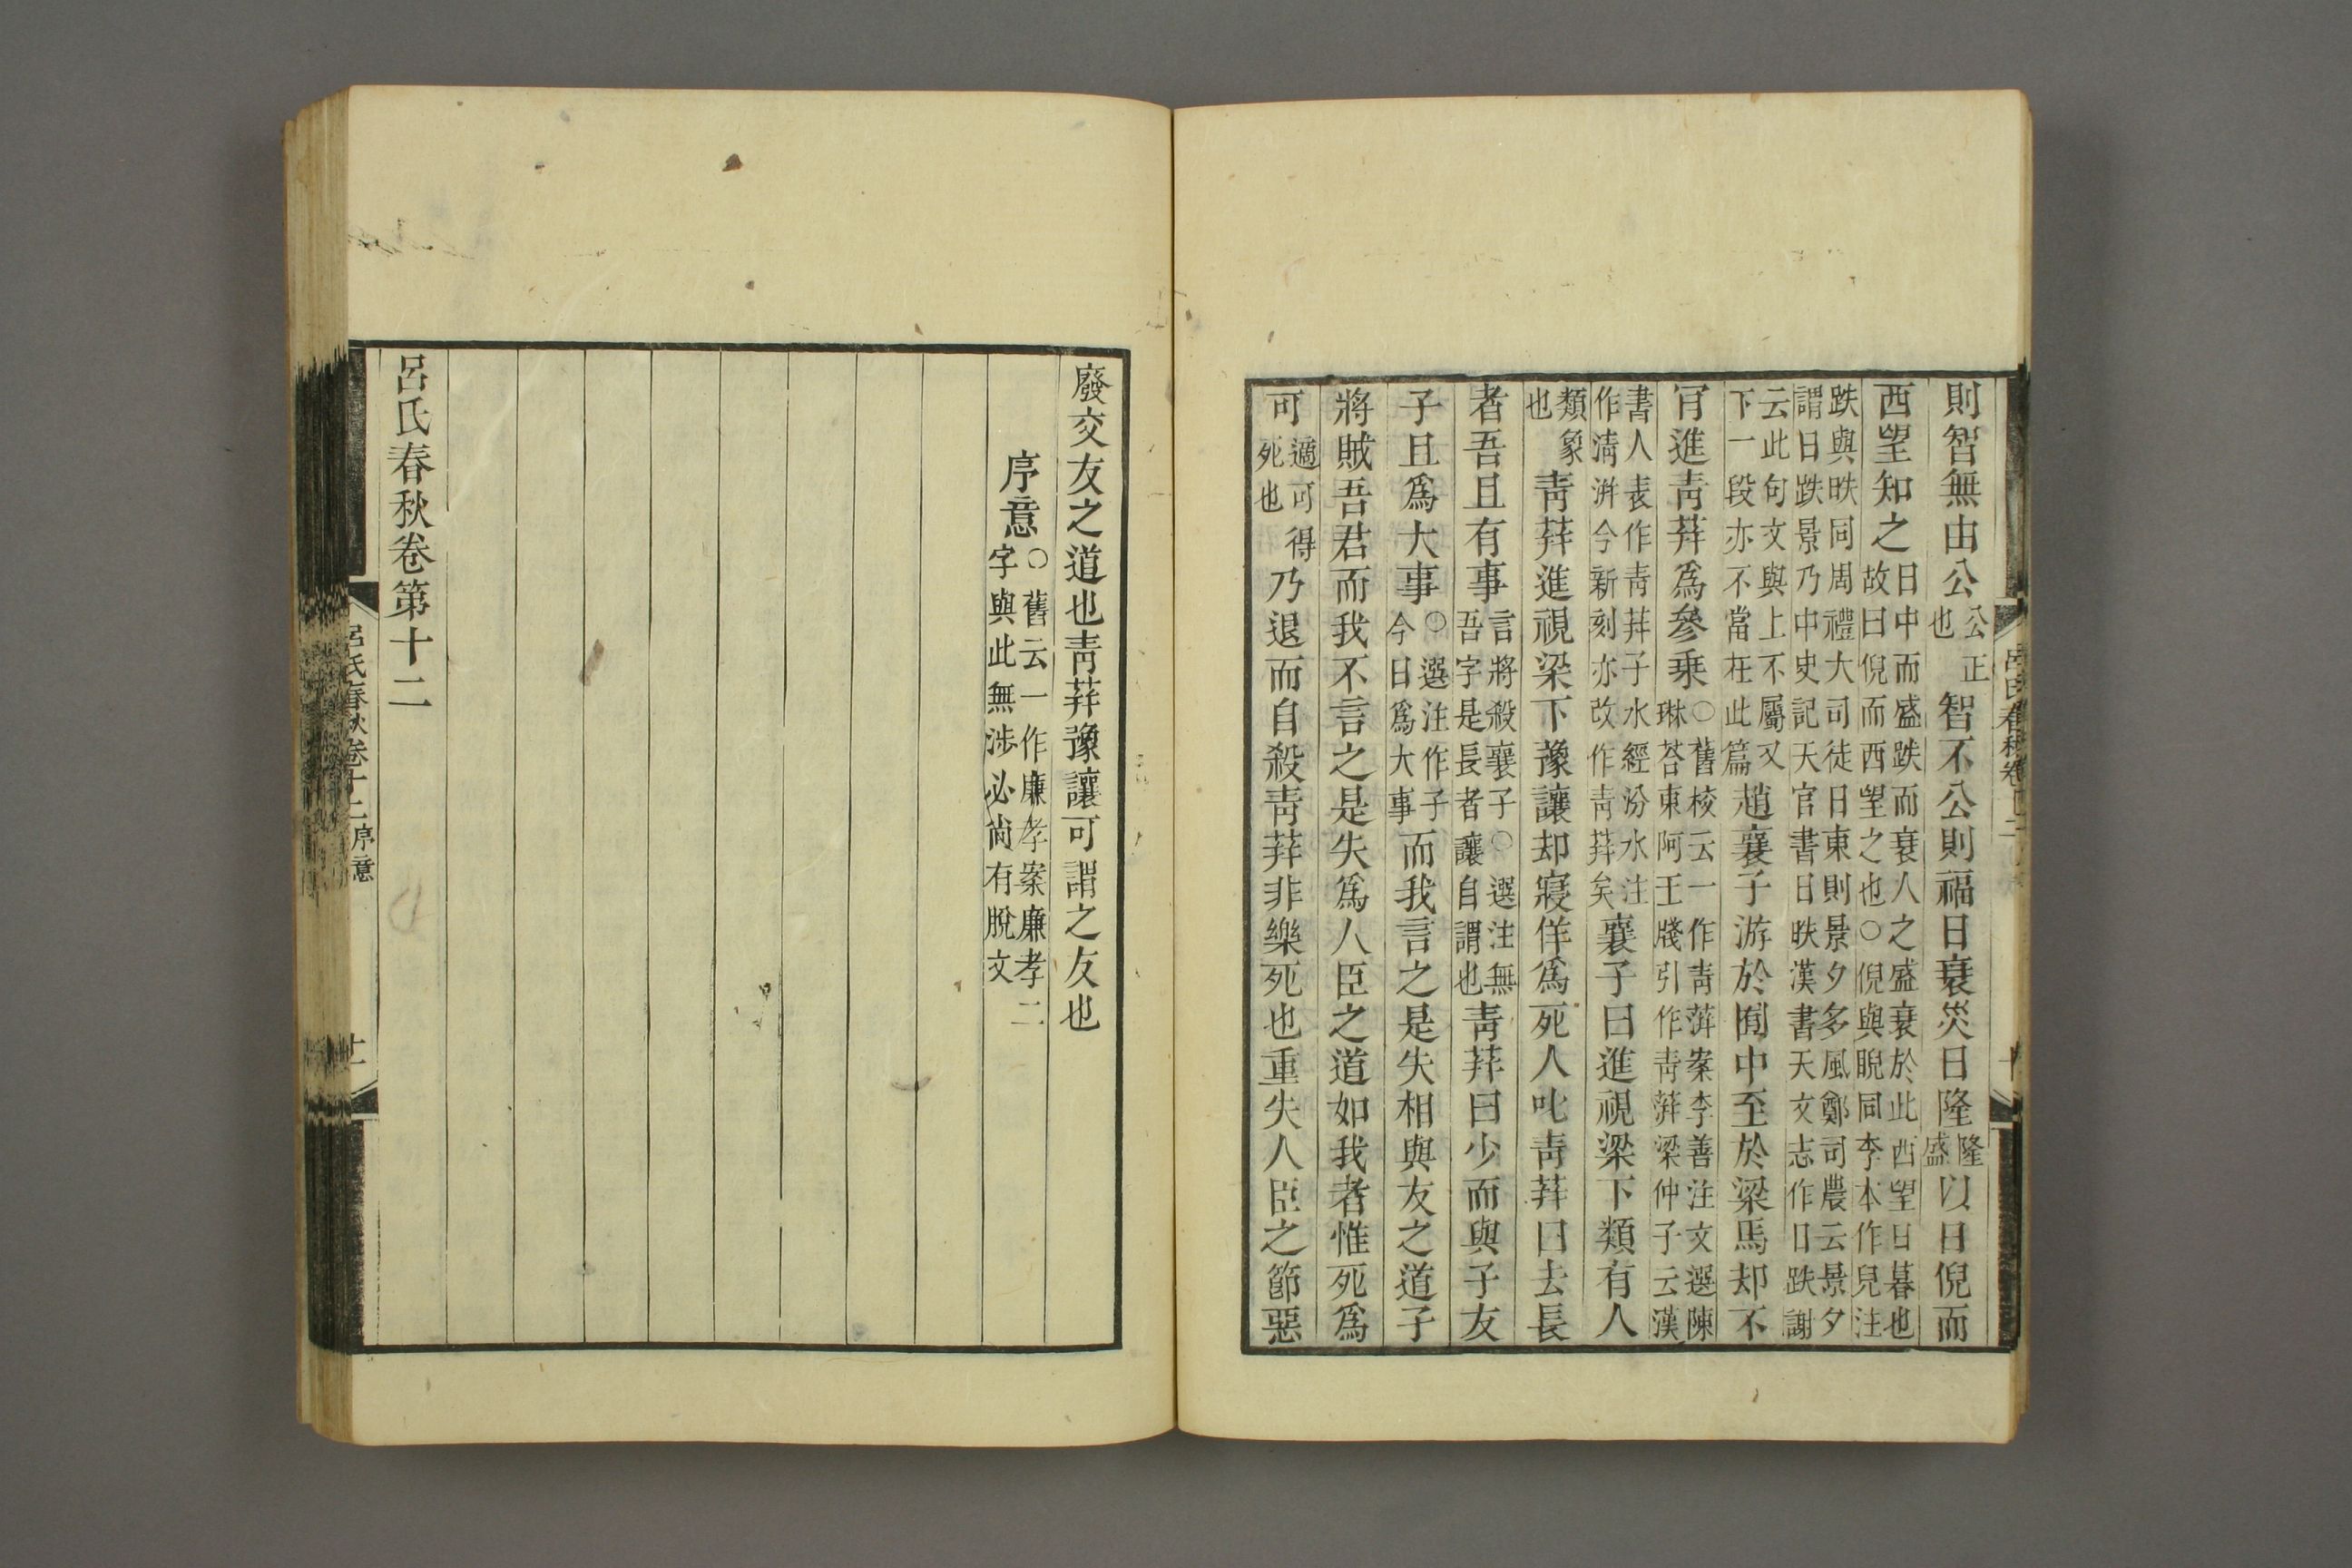 則智無由公公正也智不公則福日衰災日隆隆盛以日倪而
西望知之日中而盛跌而衰人之盛衰於此西望日暮也故曰倪而西望之也○倪與睨同李本作兒注
跌與昳同周禮大司徒日東則景夕多風鄭司農云景夕謂日跌景乃中史記天官書日昳漢書天文志作日跌謝
云此句文與上不屬又下一段亦不當在此篇趙襄子游於囿中至於梁馬却不
肎進青荓爲參乗○舊校云一作青蓱案李善注文選陳琳荅東阿王牋引作青蓱梁仲子云漢
書人表作青荓子水經汾水注作清洴今新刻亦改作青荓矣襄子曰進視梁下類有人
類象也青荓進視梁下豫讓却寢佯爲死人叱青荓曰去長
者吾且有事言將殺襄子○選注無吾字是長者讓自謂也青荓曰少而與子友
子且爲大事○選注作子今日爲大事而我言之是失相與友之道子
將賊吾君而我不言之是失爲人臣之道如我者惟死爲
可適可得死也乃退而自殺青荓非樂死也重失人臣之節惡
廢交友之道也青荓豫讓可謂之友也
序意○舊云一作廉孝案廉孝二字與此無涉必尚有脫文
呂氏春秋卷第十二
呂氏春秋卷十二序意